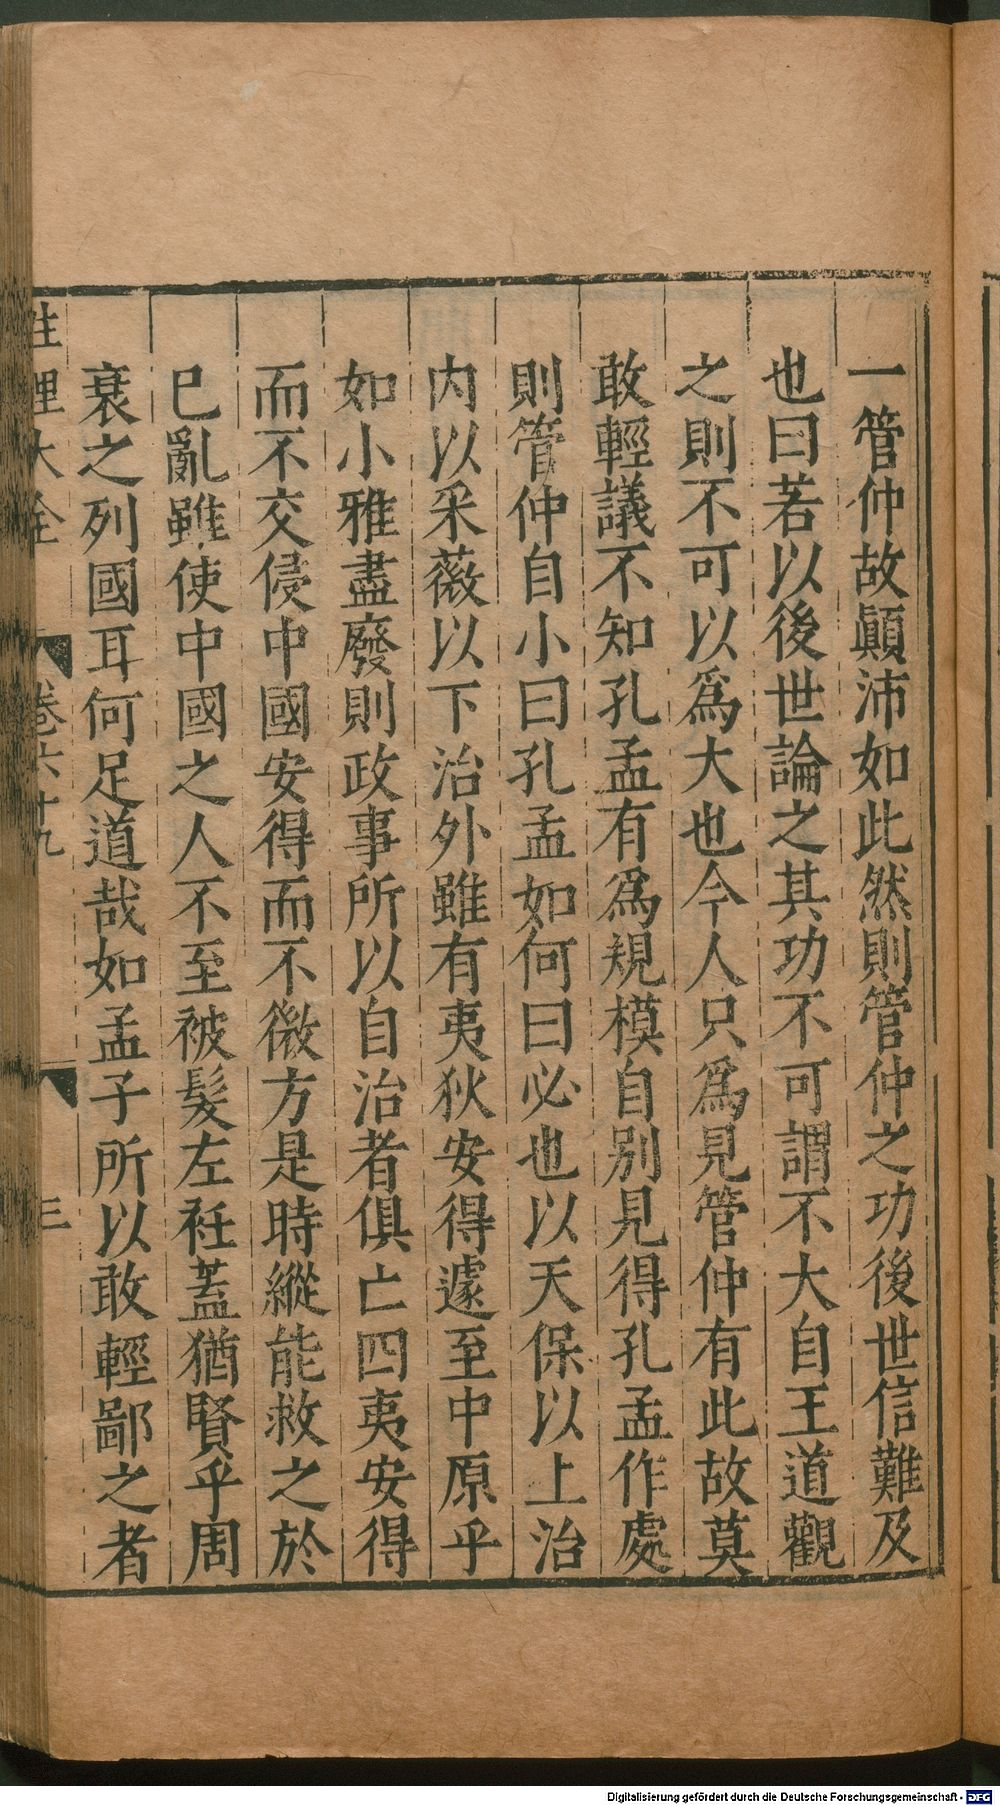 一管仲故顚沛如此然則管仲之功後世信難及
也曰若以後世論之其功不可謂不大自王道觀
之則不可以爲大也今人只爲見管仲有此故莫
敢輕議不知孔孟有爲規模自别見得孔孟作處
則管仲自小曰孔孟如何曰必也以天保以上治
内以采薇以下治外雖有夷狄安得遽至中原乎
如小雅盡廢則政事所以自治者俱亡四夷安得
而不交侵中國安得而不微方是時縱能救之於
已亂雖使中國之人不至被髮左衽蓋猶賢乎周
衰之列國耳何足道哉如孟子所以敢輕鄙之者
性理大全 卷六十九 三
Digitalisierung gefördert durch die Deutsche Forschungsgemeinschaft - DFG